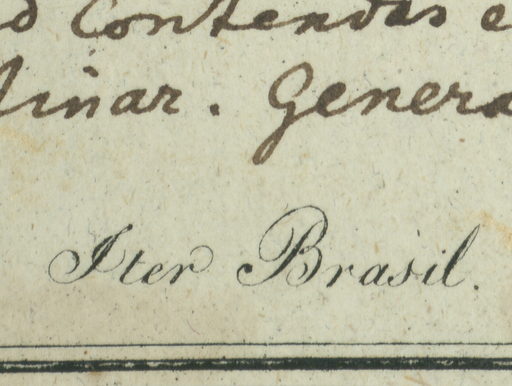 d Contendas e
Minar. Genera
Iter Brasil.